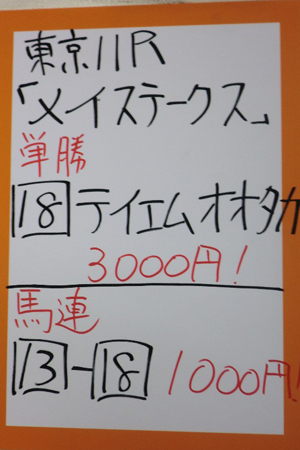 東京11R
「メイステークス」
単勝
18テイエムオオタカ
3000円!
馬連
13-18 1000円!